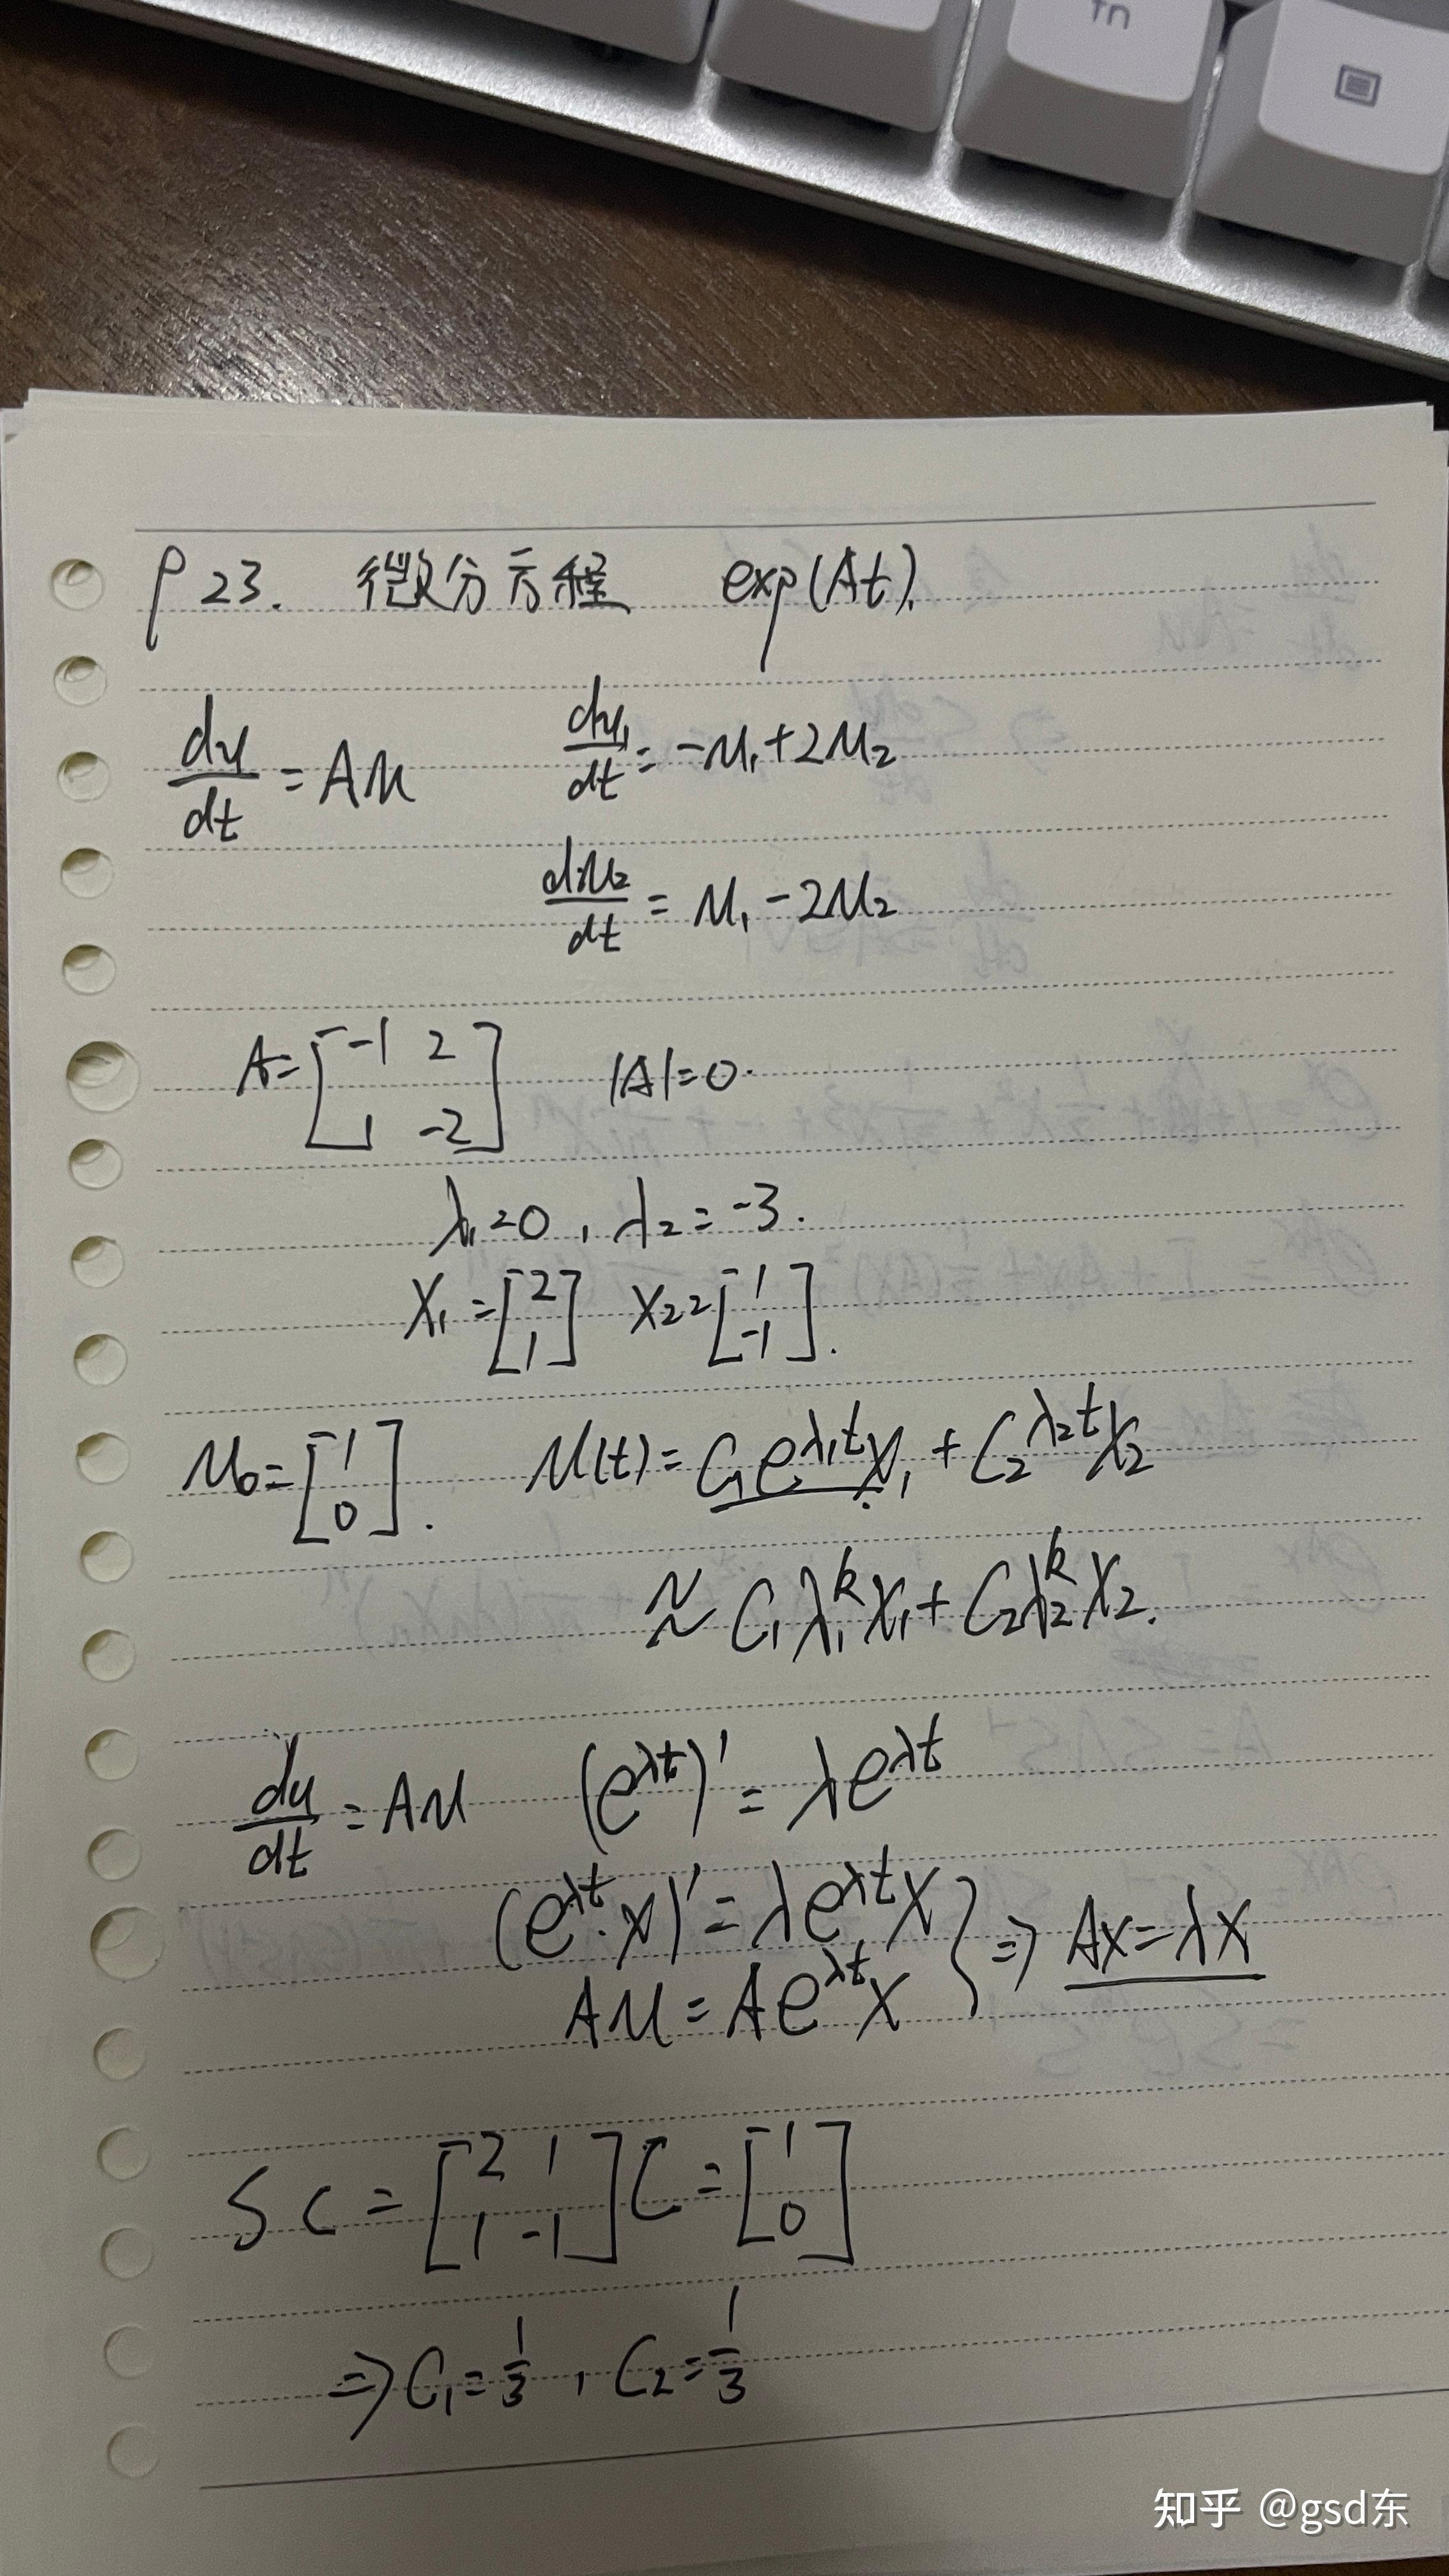 fn
P23. 微分方程 exp(At).
du/dt = Au du₁/dt = -u₁+2u₂
du₂/dt = u₁-2u₂
A = [-1 2; 1 -2] |A|=0.
λ₁=0, λ₂=-3.
X₁ = [2; 1] X₂ = [1; -1].
u₀ = [1; 0]. u(t) = C₁e^{λ₁t}X₁ + C₂^{λ₂t}X₂
≈ C₁λ₁^k X₁ + C₂λ₂^k X₂.
du/dt = Au (e^{λt})' = λe^{λt}
(e^{λt}·X)' = λe^{λt}X
Au = Ae^{λt}X } ⇒ AX=λX
SC = [2 1; 1 -1] C = [1; 0]
⇒ C₁=1/3, C₂=1/3
知乎 @gsd东